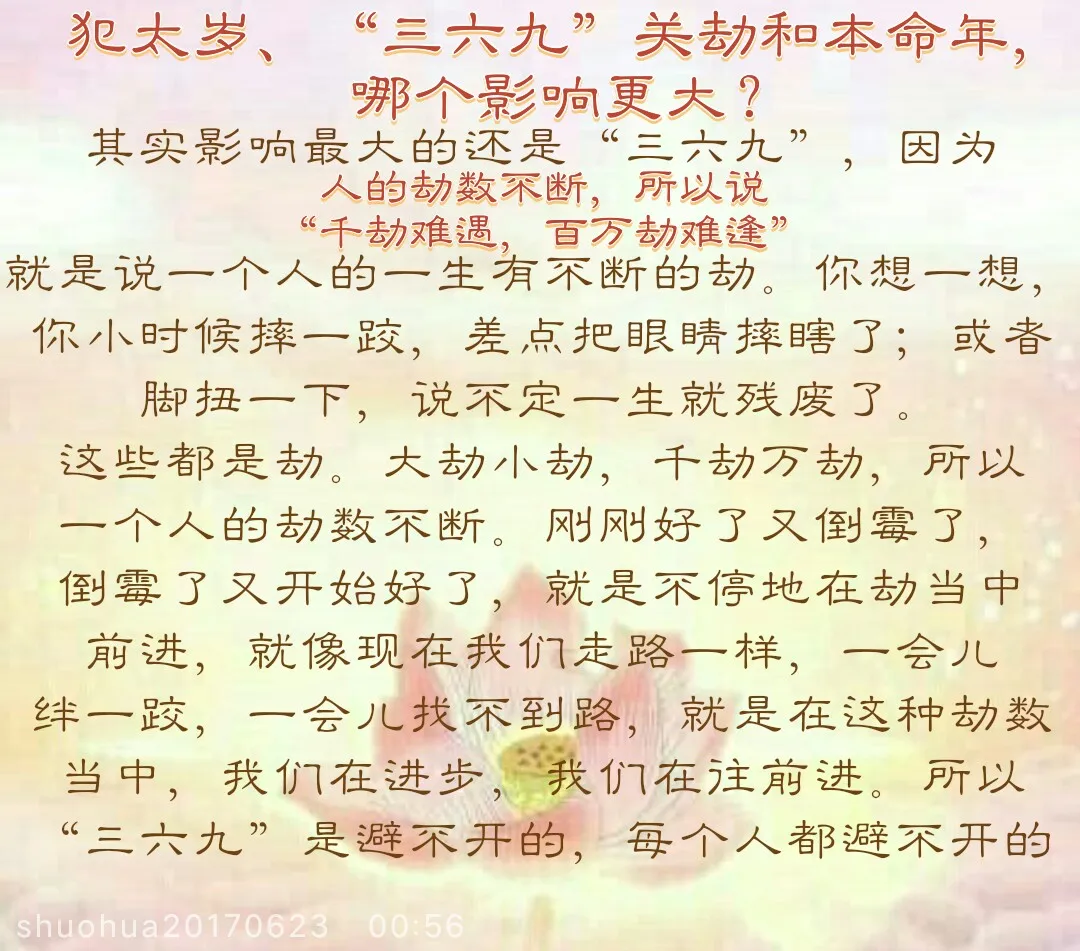 犯太岁、“三六九”关劫和本命年，
哪个影响更大？
其实影响最大的还是“三六九”，因为
人的劫数不断，所以说
“千劫难遇，百万劫难逢”
就是说一个人的一生有不断的劫。你想一想，
你小时候摔一跤，差点把眼睛摔瞎了；或者
脚扭一下，说不定一生就残废了。
这些都是劫。大劫小劫，千劫万劫，所以
一个人的劫数不断。刚刚好了又倒霉了，
倒霉了又开始好了，就是不停地在劫当中
前进，就像现在我们走路一样，一会儿
绊一跤，一会儿找不到路，就是在这种劫数
当中，我们在进步，我们在往前进。所以
“三六九”是避不开的，每个人都避不开的
shuohua20170623 00:56